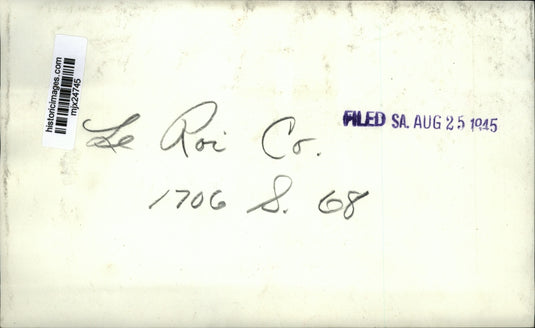 historicimages.com
mjx24745
Le Roi Co.
FILED SA. AUG 25 1945
1706 S. 68